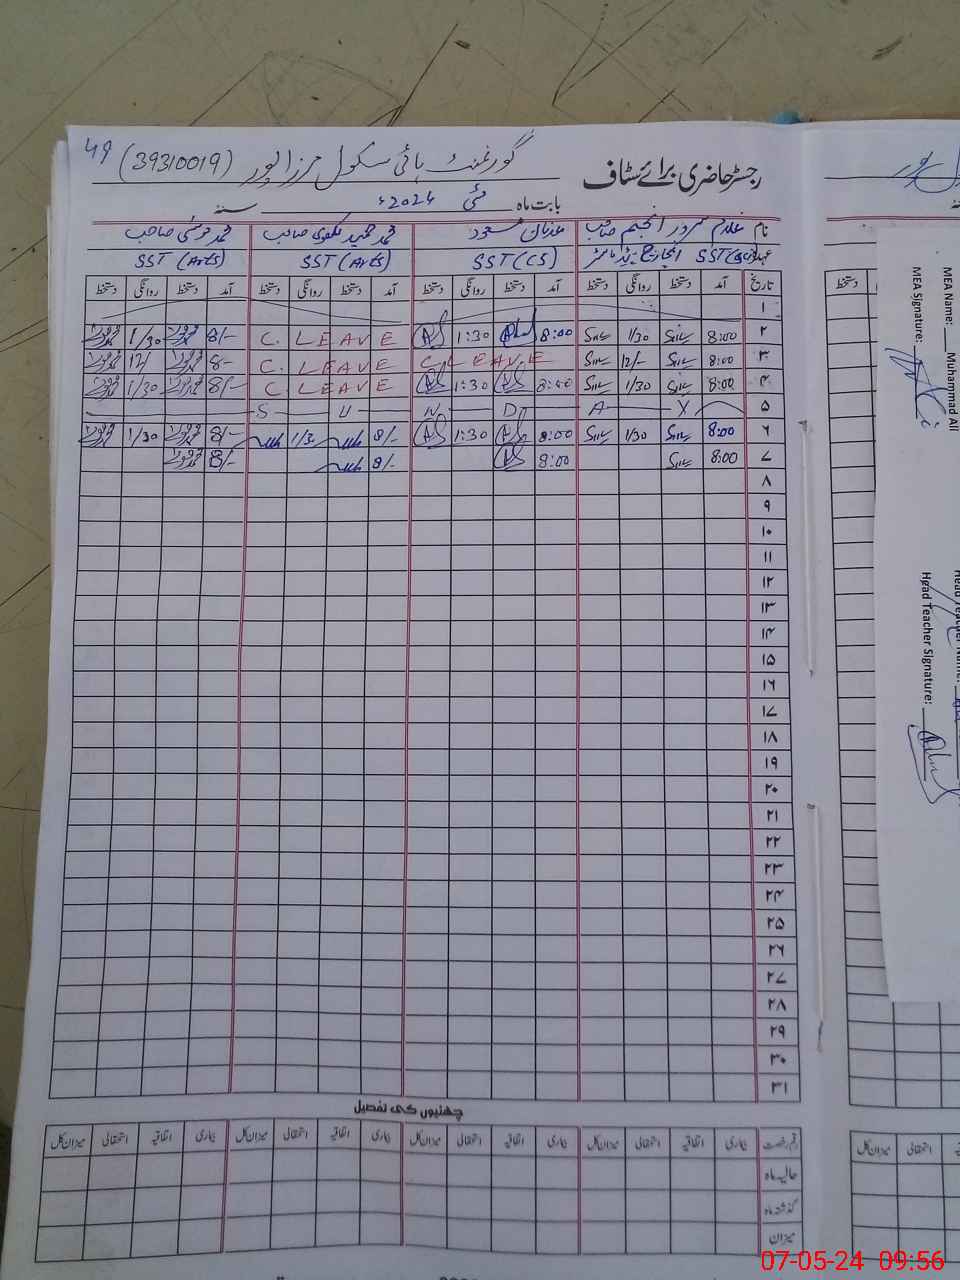 49
گورنمنٹ ہائی سکول مرزا پور (39310019)
رجسٹر حاضری برائے سٹاف
بابت ماہ مئی 2024ء سنہ
نام غلام سرور انجم صاحب عدنان مسعود محمد حمید نقوی صاحب محمد موسیٰ صاحب
عہدہ SST (Sci) انچارج ہیڈ ماسٹر SST (CS) SST (Arts) SST (Arts)
تاریخ آمد دستخط روانگی دستخط آمد دستخط روانگی دستخط آمد دستخط روانگی دستخط آمد دستخط روانگی دستخط
۱
۲ 8:00 1/30 8:00 1:30 C. LEAVE 8/- 1/30
۳ 8:00 12/- C. LEAVE C. LEAVE 8/- 12/
۴ 8:00 1/30 8:00 1:30 C. LEAVE 8/- 1/30
۵ S U N D A Y
۶ 8:00 1/30 8:00 1:30 8/- 1/30 8/- 1/30
۷ 8:00 8:00 8/- 8/-
۸
۹
۱۰
۱۱
۱۲
۱۳
۱۴
۱۵
۱۶
۱۷
۱۸
۱۹
۲۰
۲۱
۲۲
۲۳
۲۴
۲۵
۲۶
۲۷
۲۸
۲۹
۳۰
۳۱
چھٹیوں کی تفصیل
قسم رخصت بیماری اتفاقیہ استحقاقی میزان کل بیماری اتفاقیہ استحقاقی میزان کل بیماری اتفاقیہ استحقاقی میزان کل بیماری اتفاقیہ استحقاقی میزان کل
حالیہ ماہ
گذشتہ ماہ
میزان
دستخط
MEA Name: Muhammad Ali
MEA Signature:
Head Teacher Name:
Head Teacher Signature:
میزان کل استحقاقی
07-05-24 09:56